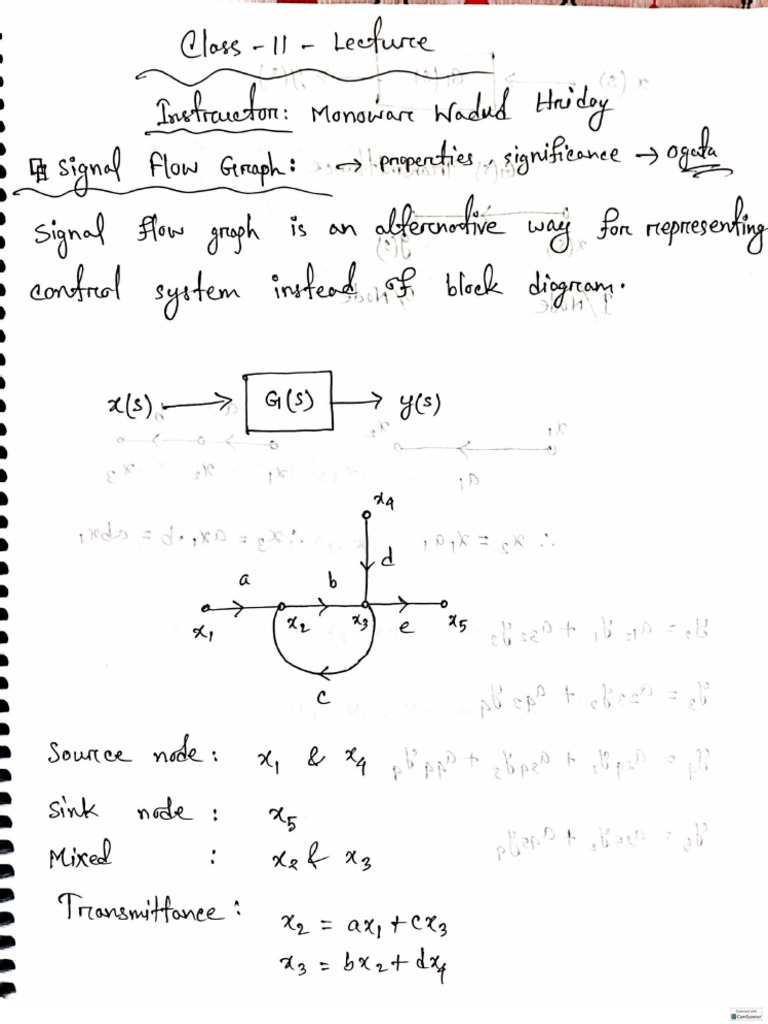 Class - 11 - Lecture
Instructor: Monowar Wadud Hriday
Signal Flow Graph: → properties, significance → Ogata
Signal flow graph is an alternative way for representing
control system instead of block diagram.
x(s) → G(s) → y(s)
x₄
d
a b
x₁ x₂ x₃ e x₅
c
Source node : x₁ & x₄
Sink node : x₅
Mixed : x₂ & x₃
Transmittance : x₂ = ax₁ + cx₃
x₃ = bx₂ + dx₄
Scanned with
CamScanner